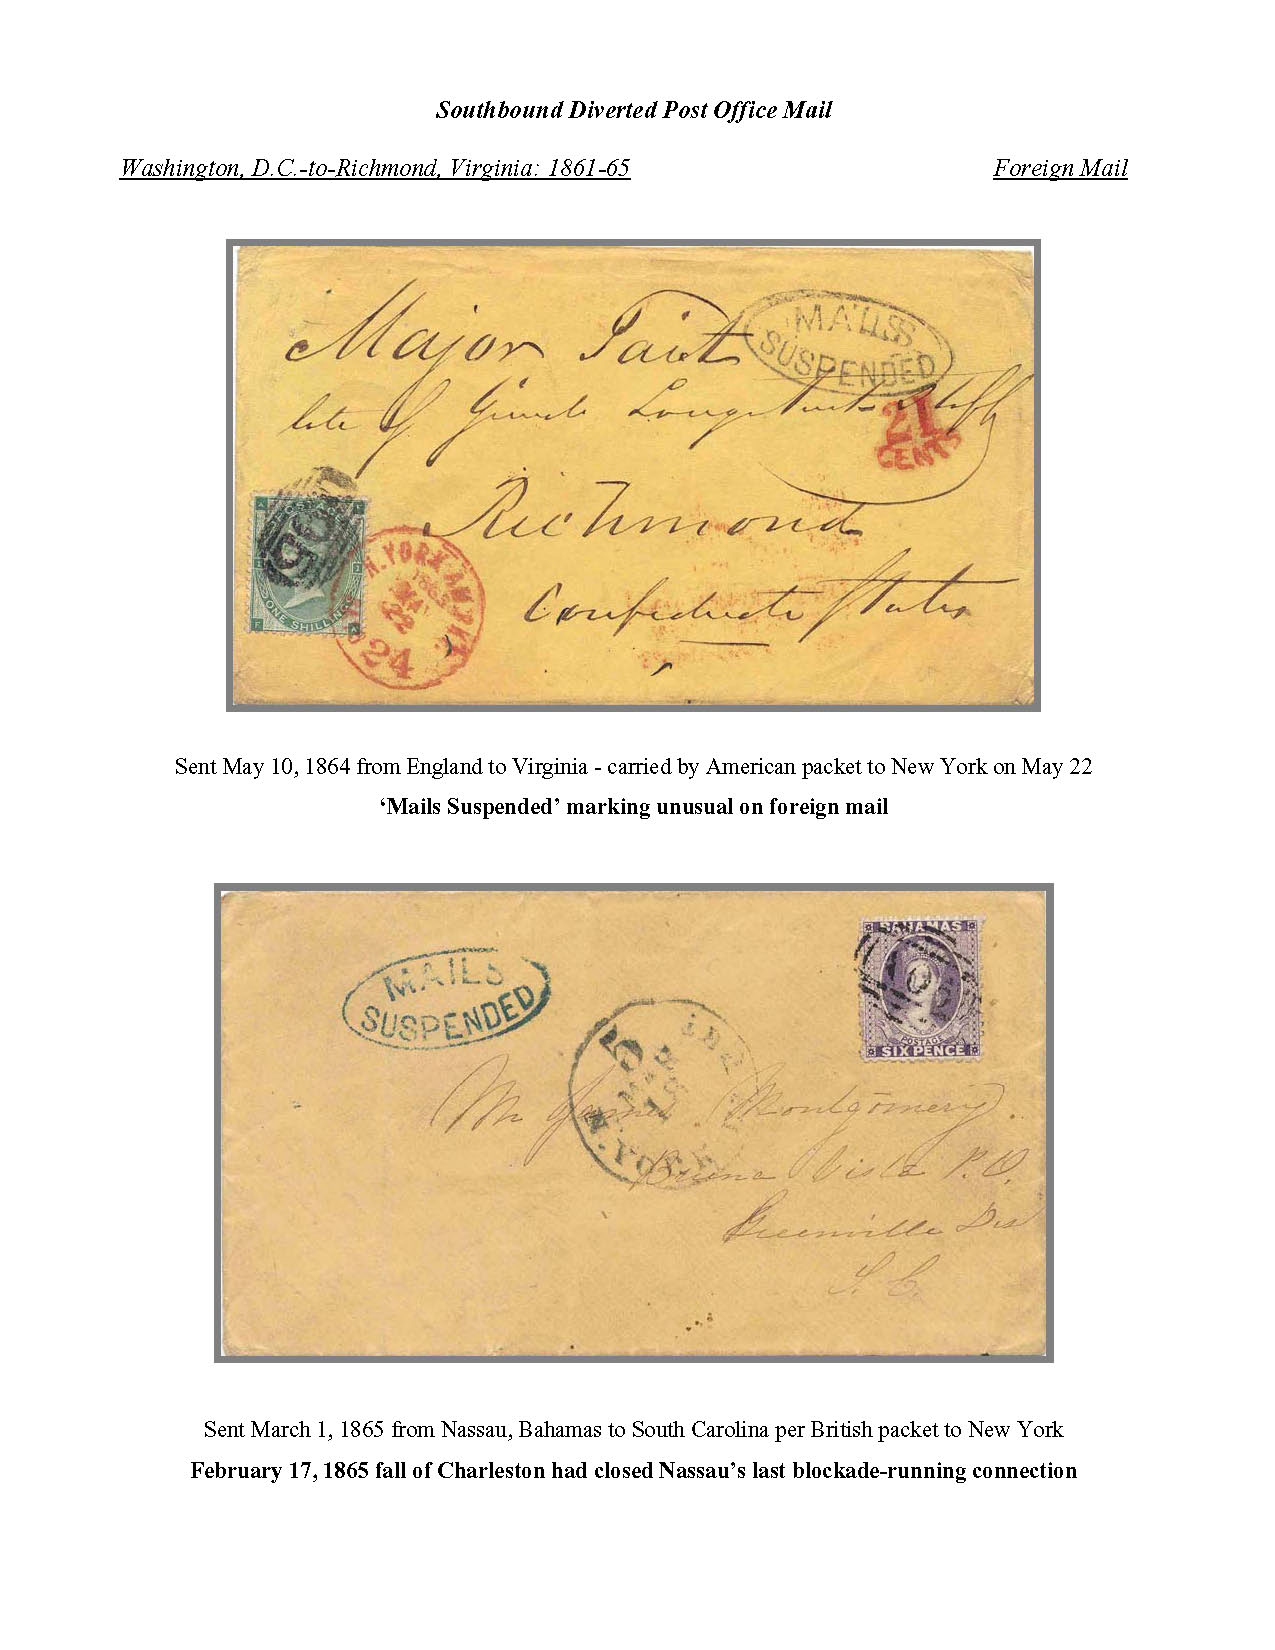 Southbound Diverted Post Office Mail
Washington, D.C.-to-Richmond, Virginia: 1861-65 Foreign Mail
MAILS
SUSPENDED
Major Tait
late of Longstreet
21
CENTS
Richmond
Confederate States
ONE SHILLING
N. YORK AM. PKT.
24
Sent May 10, 1864 from England to Virginia - carried by American packet to New York on May 22
‘Mails Suspended’ marking unusual on foreign mail
BAHAMAS
POSTAGE
SIX PENCE
MAILS
SUSPENDED
5
MAR
N. YORK
Mr James Montgomery.
Buena Vista P.O.
Greenville Dis
S. C.
Sent March 1, 1865 from Nassau, Bahamas to South Carolina per British packet to New York
February 17, 1865 fall of Charleston had closed Nassau’s last blockade-running connection